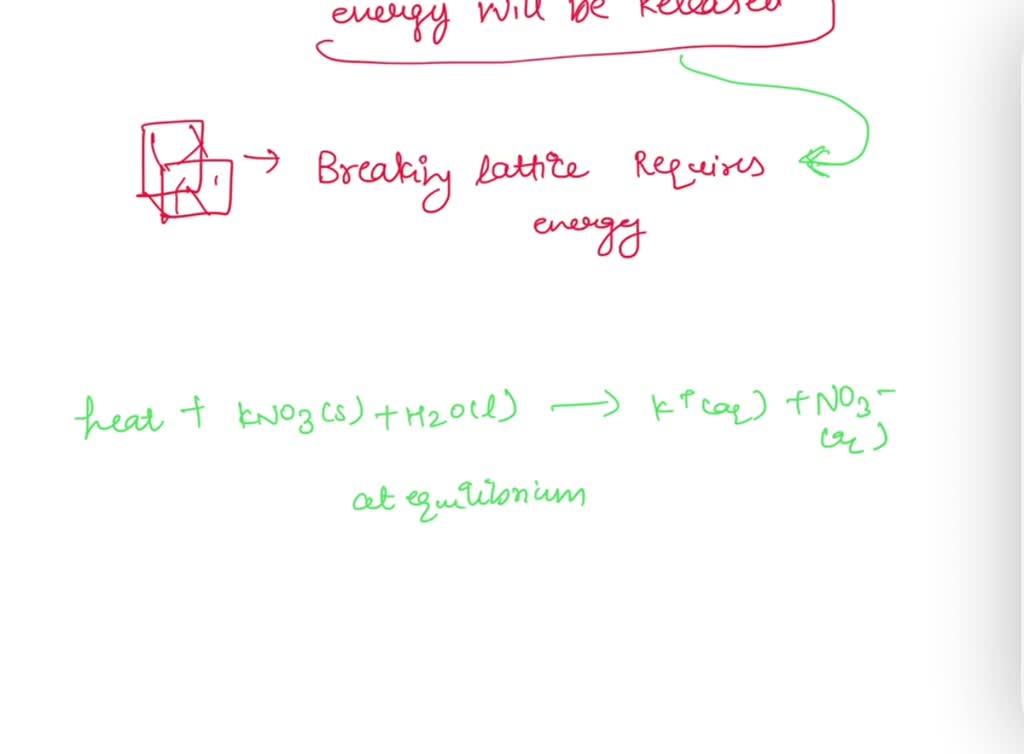 energy will be Released
Breaking lattice Requires
energy
heat + KNO3(s) + H2O(l) → K+(aq) + NO3-
(aq)
at equilibrium